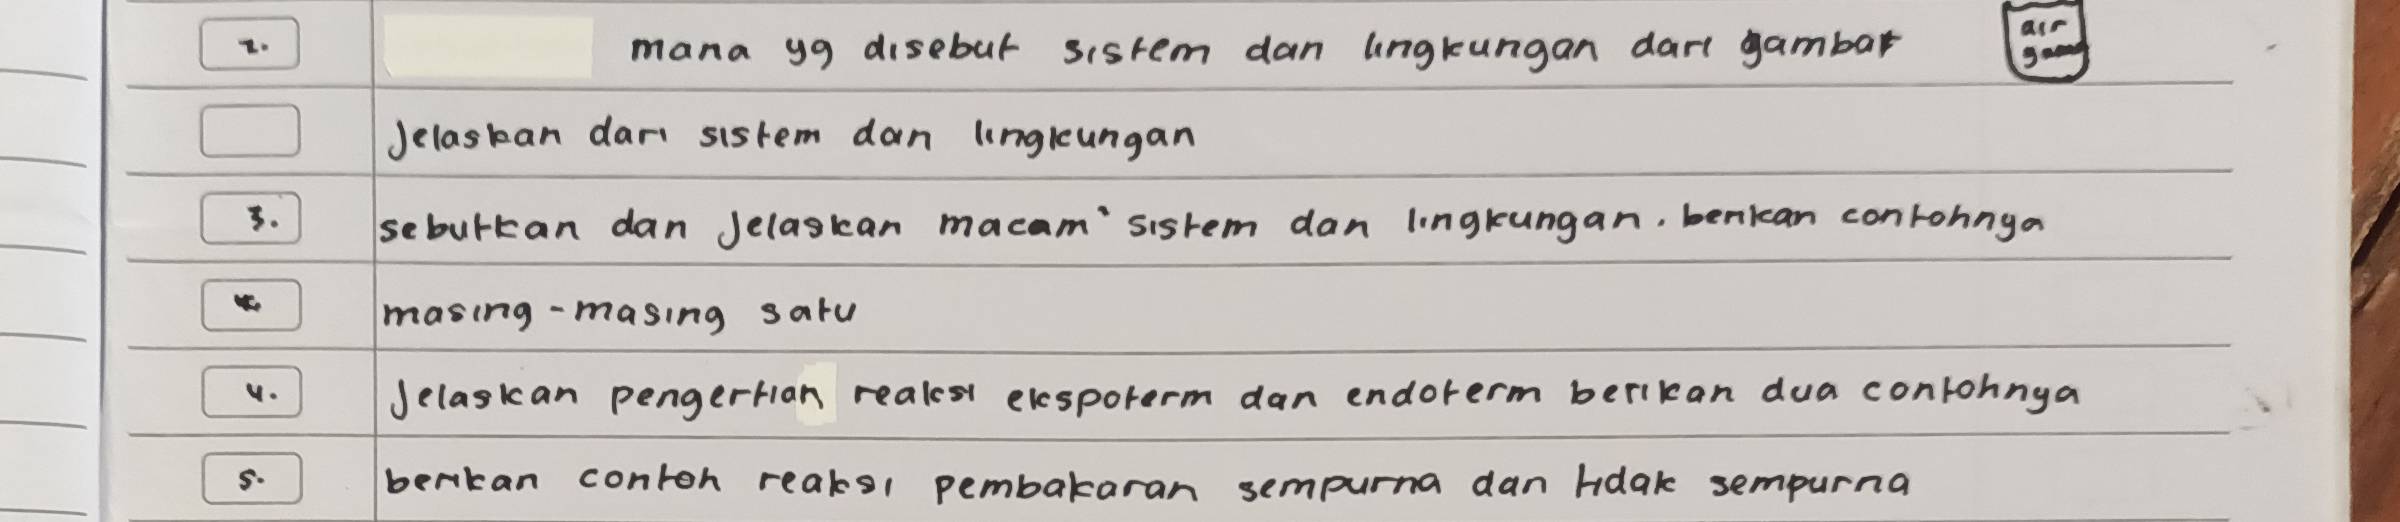 2. mana yg disebut sistem dan lingkungan dari gambar air
Jelaskan dari sistem dan lingkungan
3. sebutkan dan Jelaskan macam` sistem dan lingkungan. berikan contohnya
masing-masing satu
4. Jelaskan pengertian reaksi ekspoterm dan endoterm berikan dua contohnya
5. berikan contoh reaksi pembakaran sempurna dan tidak sempurna